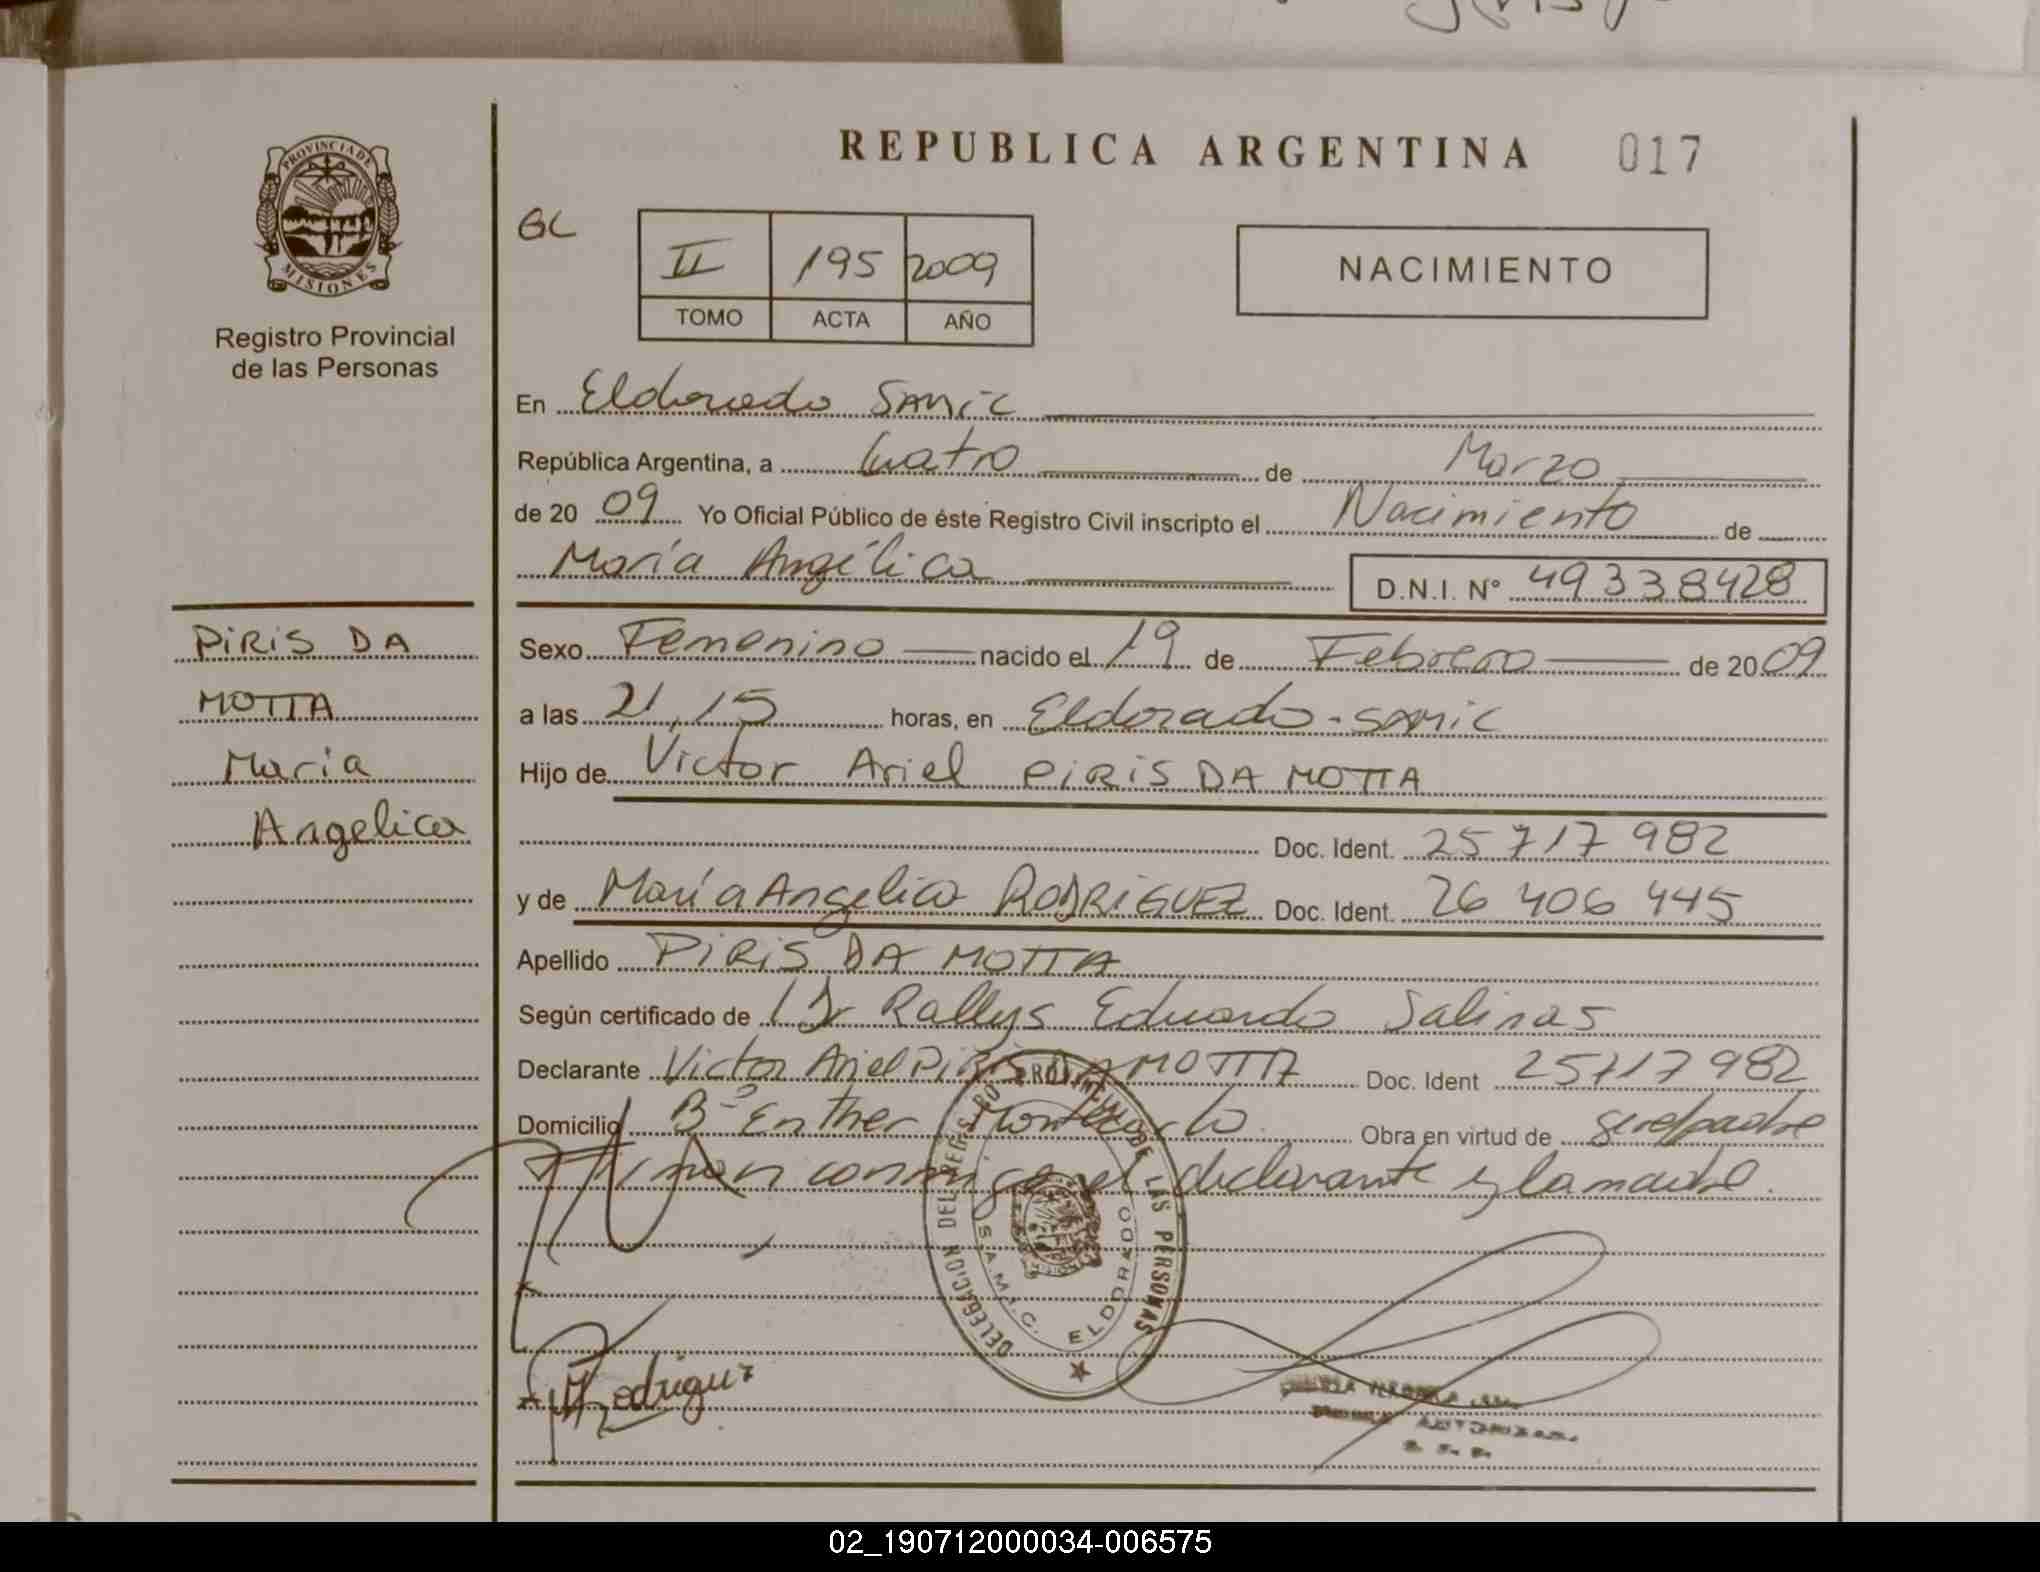 REPUBLICA ARGENTINA 017
PROVINCIA DE
MISIONES
Registro Provincial
de las Personas
GL
II 195 2009
TOMO ACTA AÑO
NACIMIENTO
En Eldorado SAMIC
República Argentina, a Cuatro de Marzo
de 20 09 Yo Oficial Público de éste Registro Civil inscripto el Nacimiento de
María Angélica D.N.I. N° 49338428
PIRIS DA
MOTTA
Maria
Angelica
Sexo Femenino nacido el 19 de Febrero de 20 09
a las 21,15 horas, en Eldorado - SAMIC
Hijo de Victor Ariel PIRIS DA MOTTA
Doc. Ident. 25 717 982
y de María Angelica RODRIGUEZ Doc. Ident. 26 406 445
Apellido PIRIS DA MOTTA
Según certificado de Dr Rallys Eduardo Salinas
Declarante Victor Ariel PIRIS DA MOTTA Doc. Ident 25717982
Domicilio B° Enther Montecarlo Obra en virtud de ser el padre
Firman conmigo el declarante y la madre.
DELEGACION DEL REGISTRO PROVINCIAL DE LAS PERSONAS
S.A.M.I.C. ELDORADO
Rodriguez
02_190712000034-006575